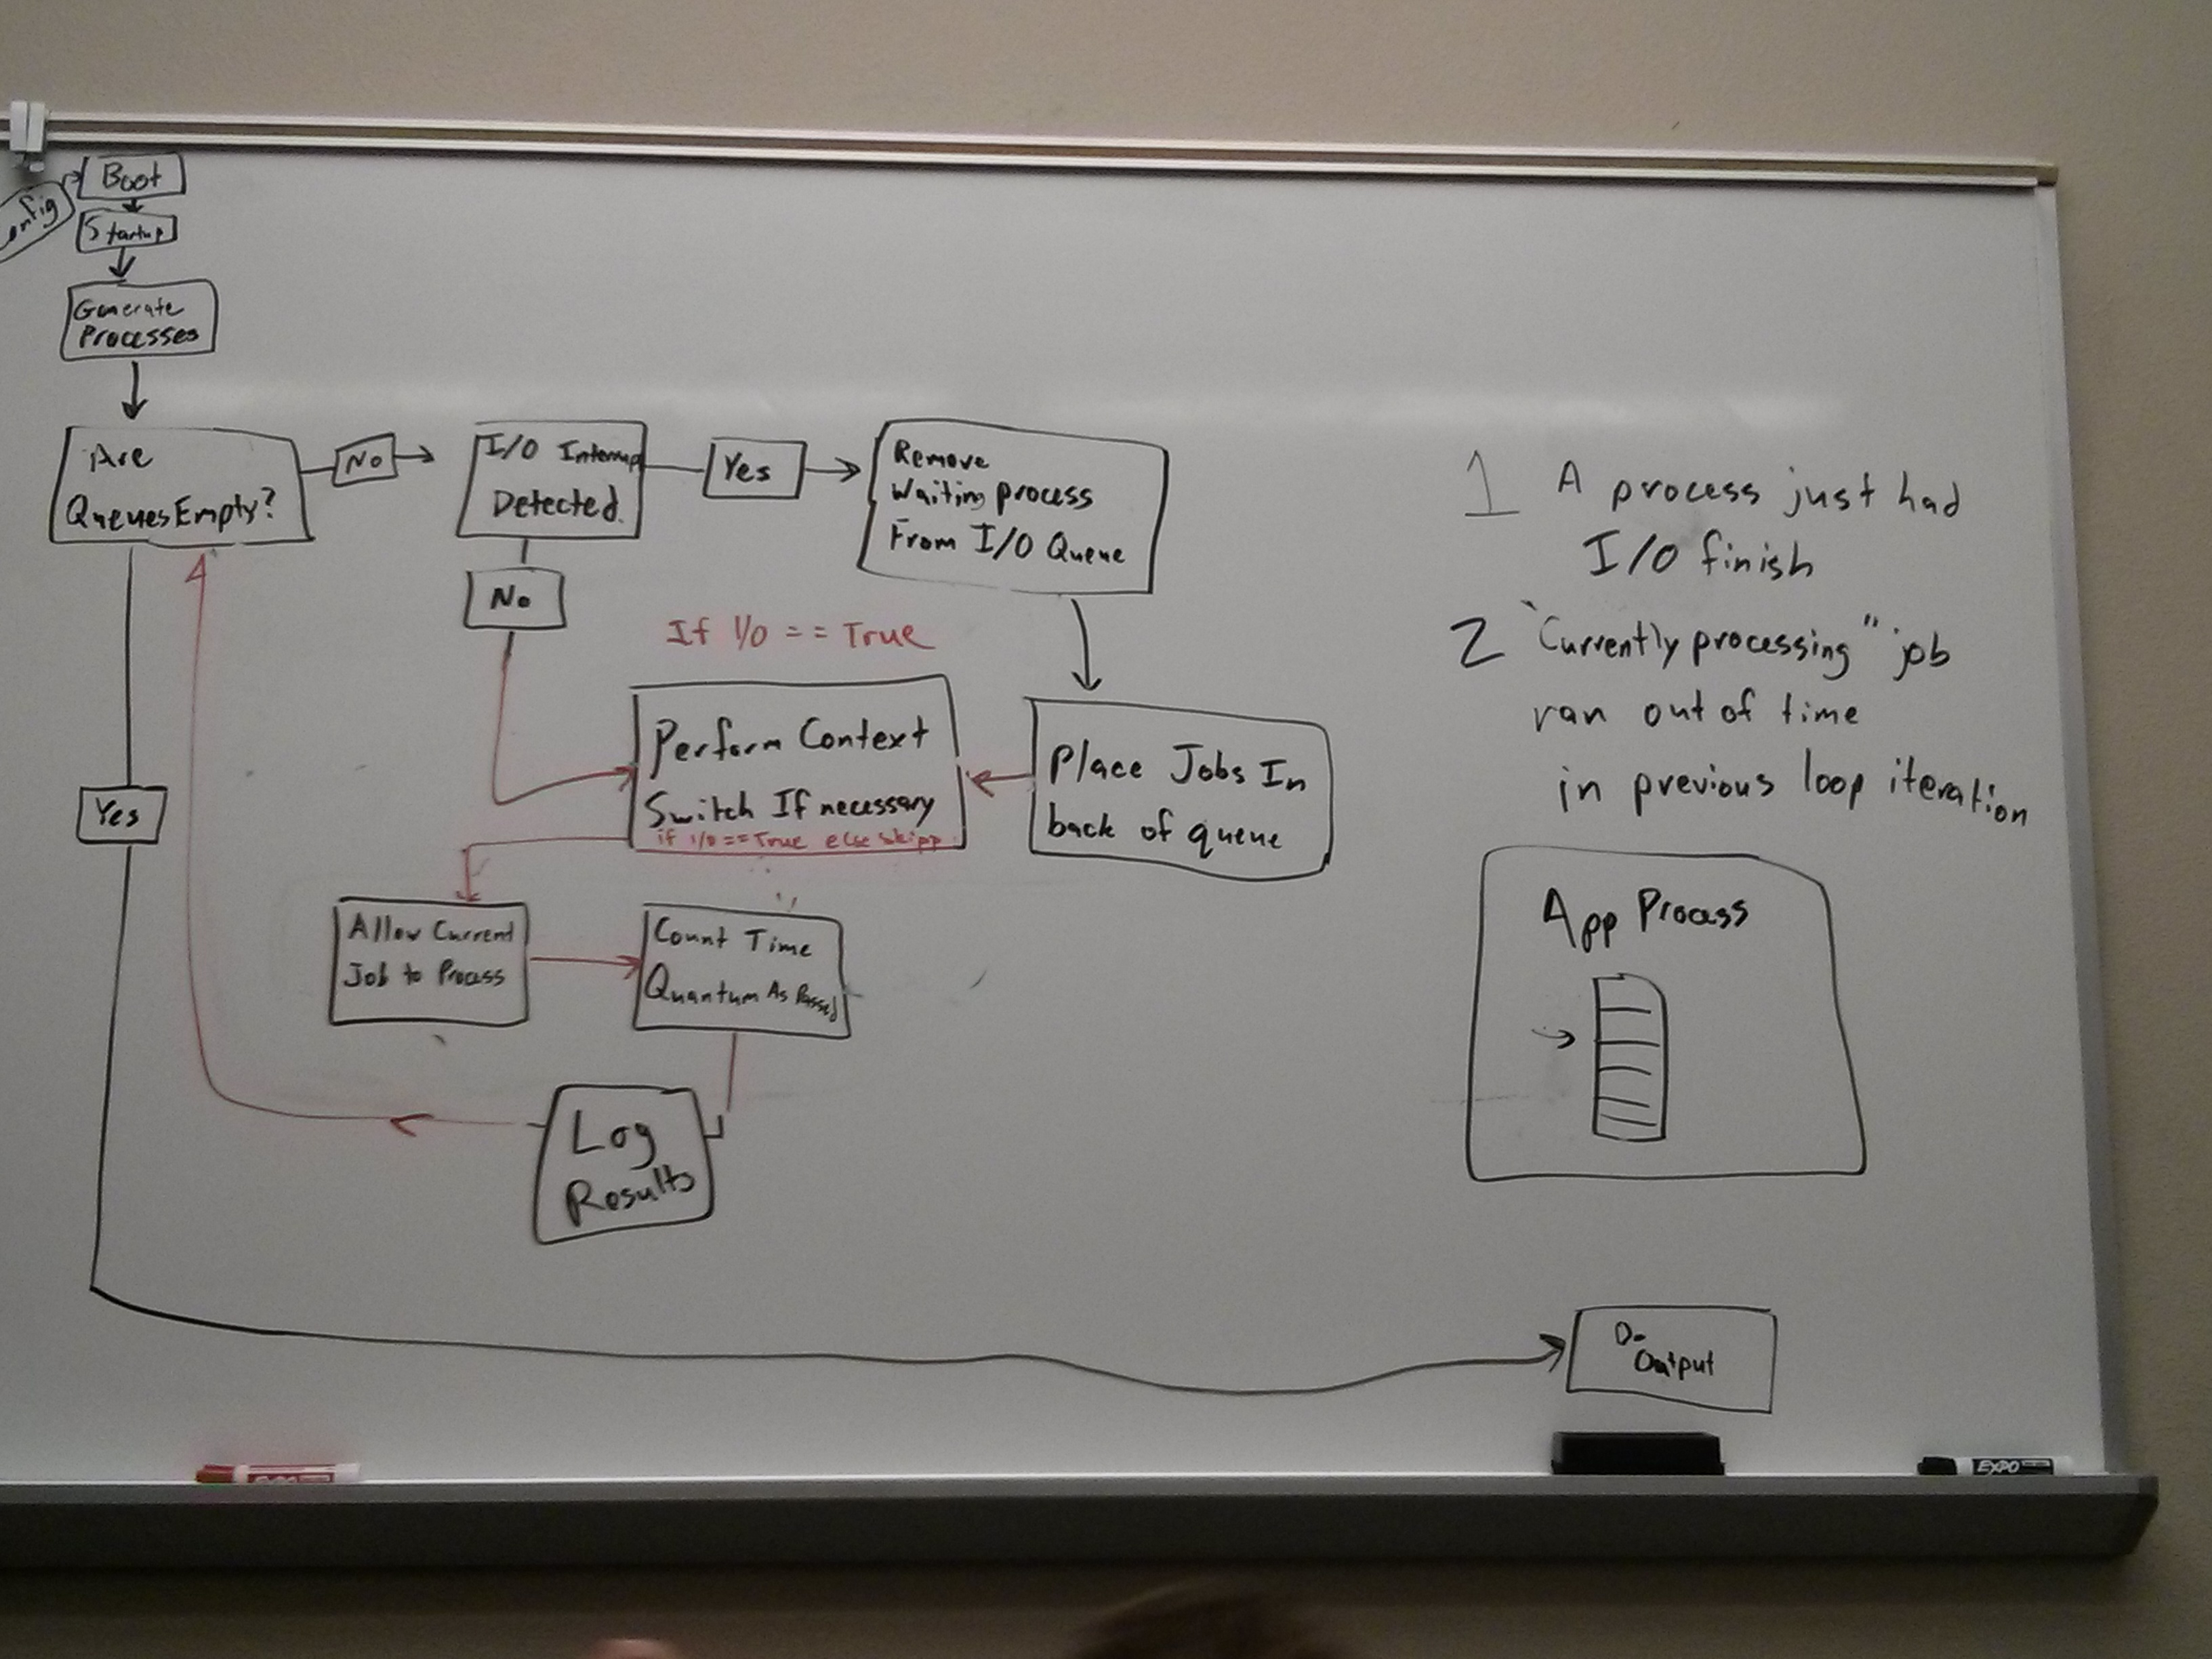 Boot
onfig
Startup
Generate
Processes
Are
Queues Empty?
No
I/O Interrup
Detected.
Yes
Remove
Waiting process
From I/O Queue
No
If I/O == True
Perform Context
Switch If necessary
if I/O == True else skipp
Place Jobs In
back of queue
Yes
Allow Current
Job to Process
Count Time
Quantum As Passed
Log
Results
1 A process just had
I/O finish
2 "Currently processing" job
ran out of time
in previous loop iteration
App Process
Do
Output
EXPO